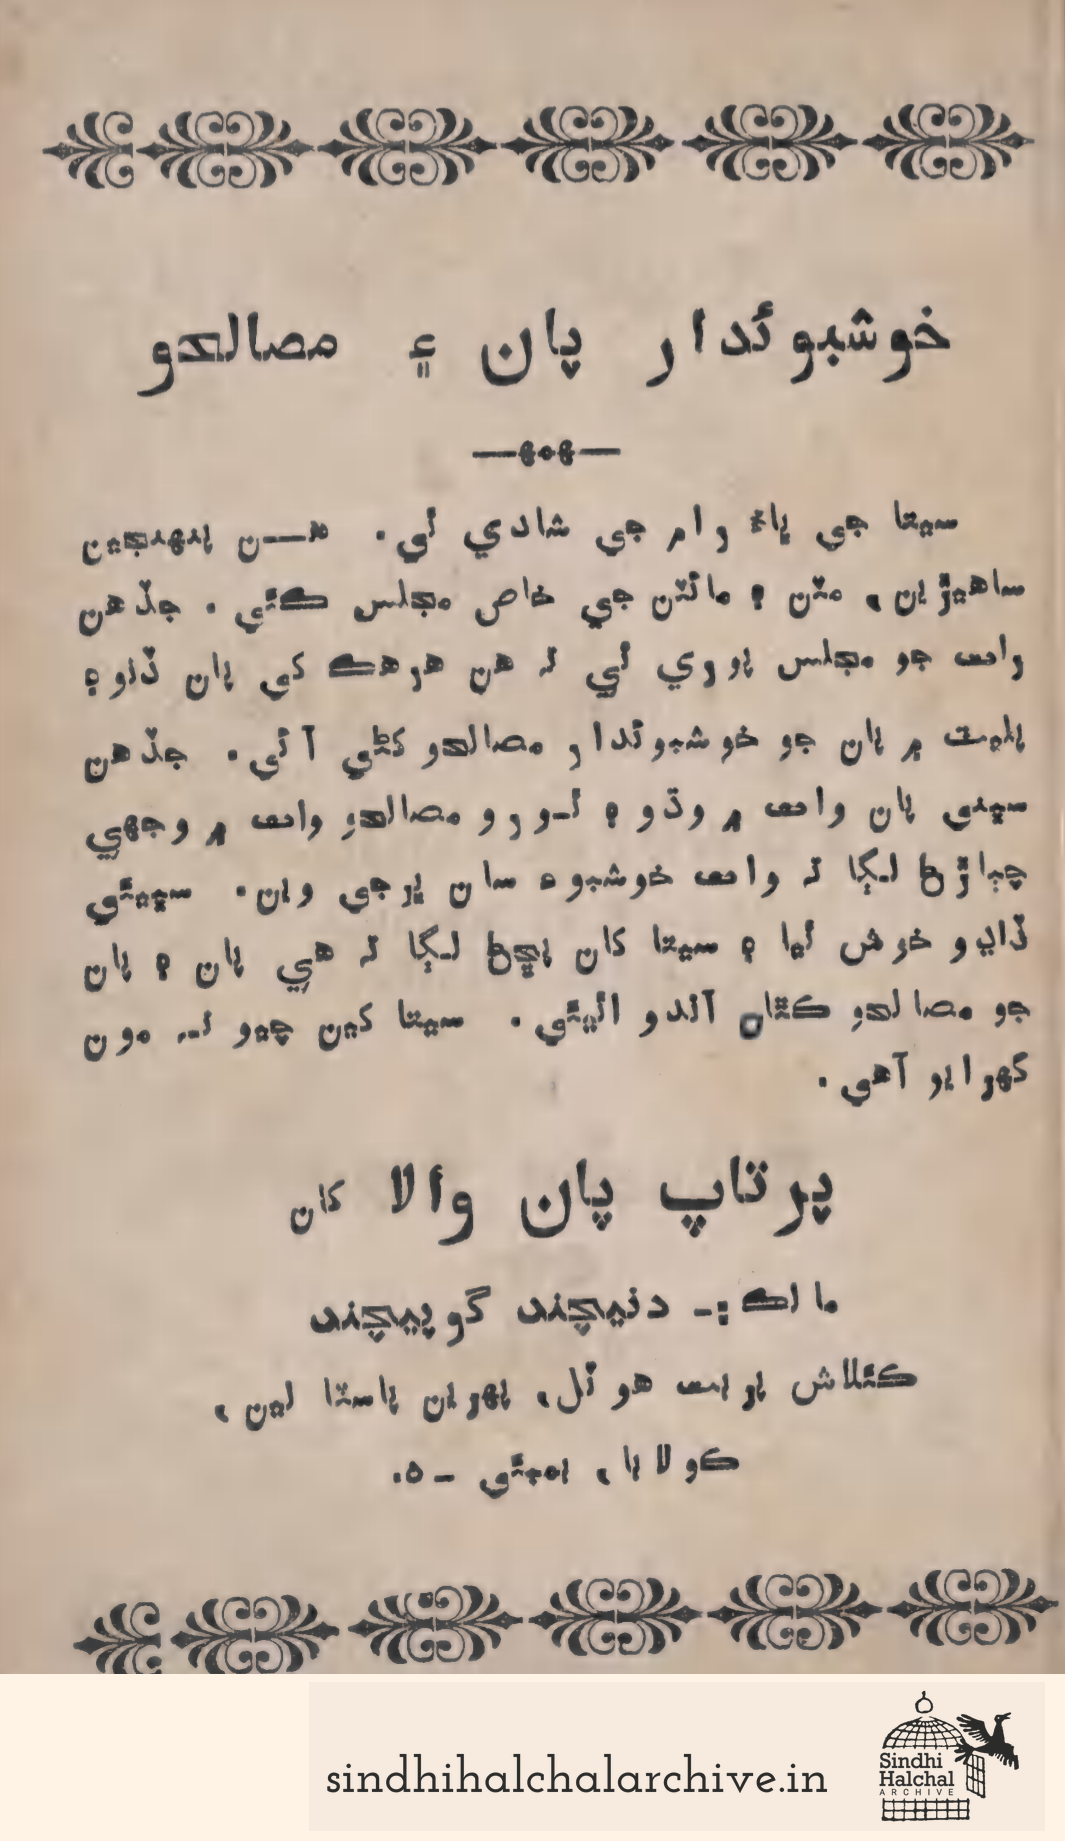 خوشبوئدار پان ۽ مصالحو
سيتا جي ڀاءُ رام جي شادي ٿي. هن پنهنجين
ساهيڙين، مٽن ۽ مائٽن جي خاص مجلس ڪئي. جڏهن
رات جو مجلس پوري ٿي تہ هن هرهڪ کي پان ڏنو ۽
پليٽ ۾ پان جو خوشبوئدار مصالحو کڻي آئي. جڏهن
سڀني پان وات ۾ وڌو ۽ ٿورو مصالحو وات ۾ وجهي
چٻاڙڻ لڳا تہ وات خوشبوءِ سان ڀرجي وين. سڀيئي
ڏاڍو خوش ٿيا ۽ سيتا کان پڇڻ لڳا تہ هي پان ۽ پان
جو مصالحو ڪٿان آندو اٿيئي. سيتا کين چيو تہ مون
گهرايو آهي.
پرتاپ پان والا کان
مالڪ:- دنيچند گوپيچند
ڪئلاش پربت هوٽل، پهرين پاستا لين،
ڪولابا، بمبئي - ٥.
sindhihalchalarchive.in
Sindhi
Halchal
ARCHIVE